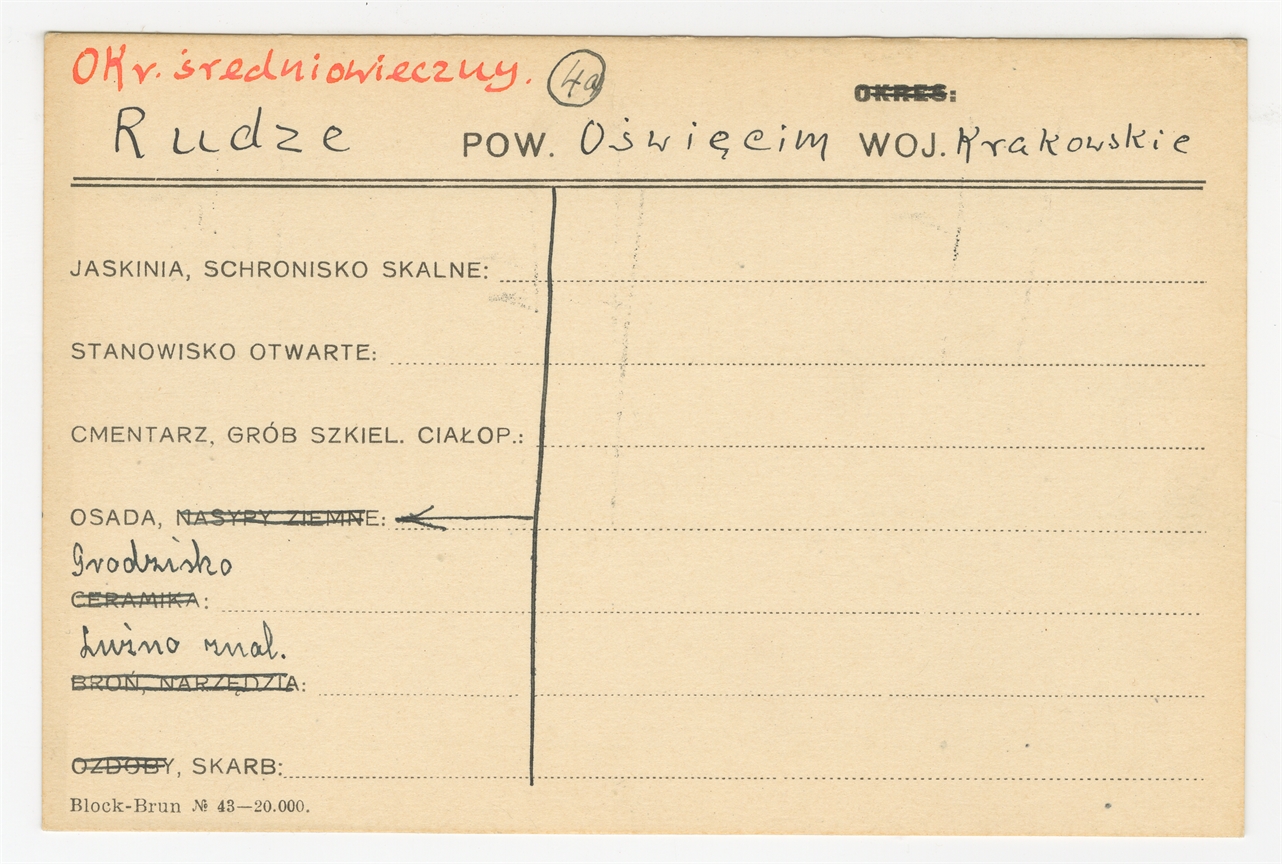 Okr. średniowieczny. 4a
OKRES:
Rudze POW. Oświęcim WOJ. Krakowskie
JASKINIA, SCHRONISKO SKALNE:
STANOWISKO OTWARTE:
CMENTARZ, GRÓB SZKIEL. CIAŁOP.:
OSADA, NASYPY ZIEMNE:
Grodzisko
CERAMIKA:
Luźno znal.
BROŃ, NARZĘDZIA:
OZDOBY, SKARB:
Block-Brun № 43—20.000.